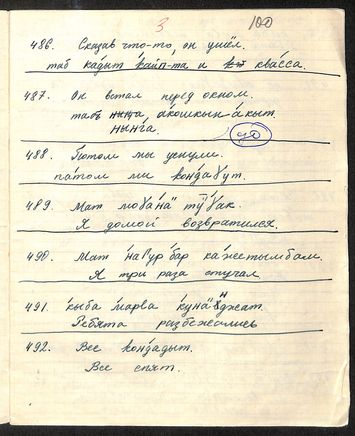 3 100
486. Сказав что-то, он ушёл.
таб ка́дыт ка́йп-та и ква́сса.
487. Он встал перед окном.
табъ а́кошкын-а́кыт.
нынӷа.
488. Потом мы уснули.
па́том ми конда́ɣут.
489. Мат
Я домой возвратился.
490. Мат на́гур бар ка́жетымбам.
Я три раза стучал
491. кыба ма́рва
Ребята разбежались
492. Все конда́дыт.
Все спят.